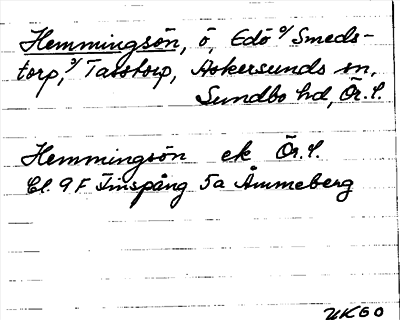 Hemmingsön, ö, Edö o/ Smeds-
torp, o/ Tasstorp, Askersunds sn,
Sundbo hd, Ör. l.
Hemmingsön ek Ör. l.
Bl. 9 F Finspång 5a Åmmeberg
UKGO